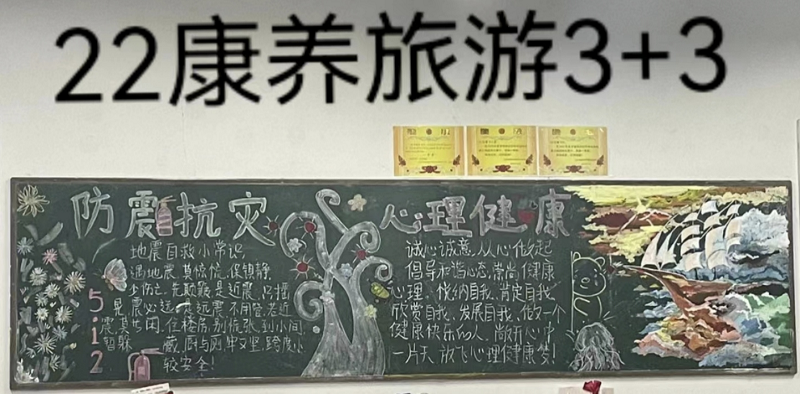 22康养旅游3+3
防震抗灾
地震自救小常识
遇地震,莫惊慌,保镇静
少伤亡,先颠簸是近震,只摇
晃震必远,是远震不用
5·12
藏,厨与厕,牢又坚,跨度小
较安全!
心理健康
诚心诚意,从心做起
倡导和谐心态,崇尚健康
心理,悦纳自我,肯定自我
欣赏自我,发展自我,做一个
健康快乐的人,敞开心中
一片天,放飞心理健康梦!